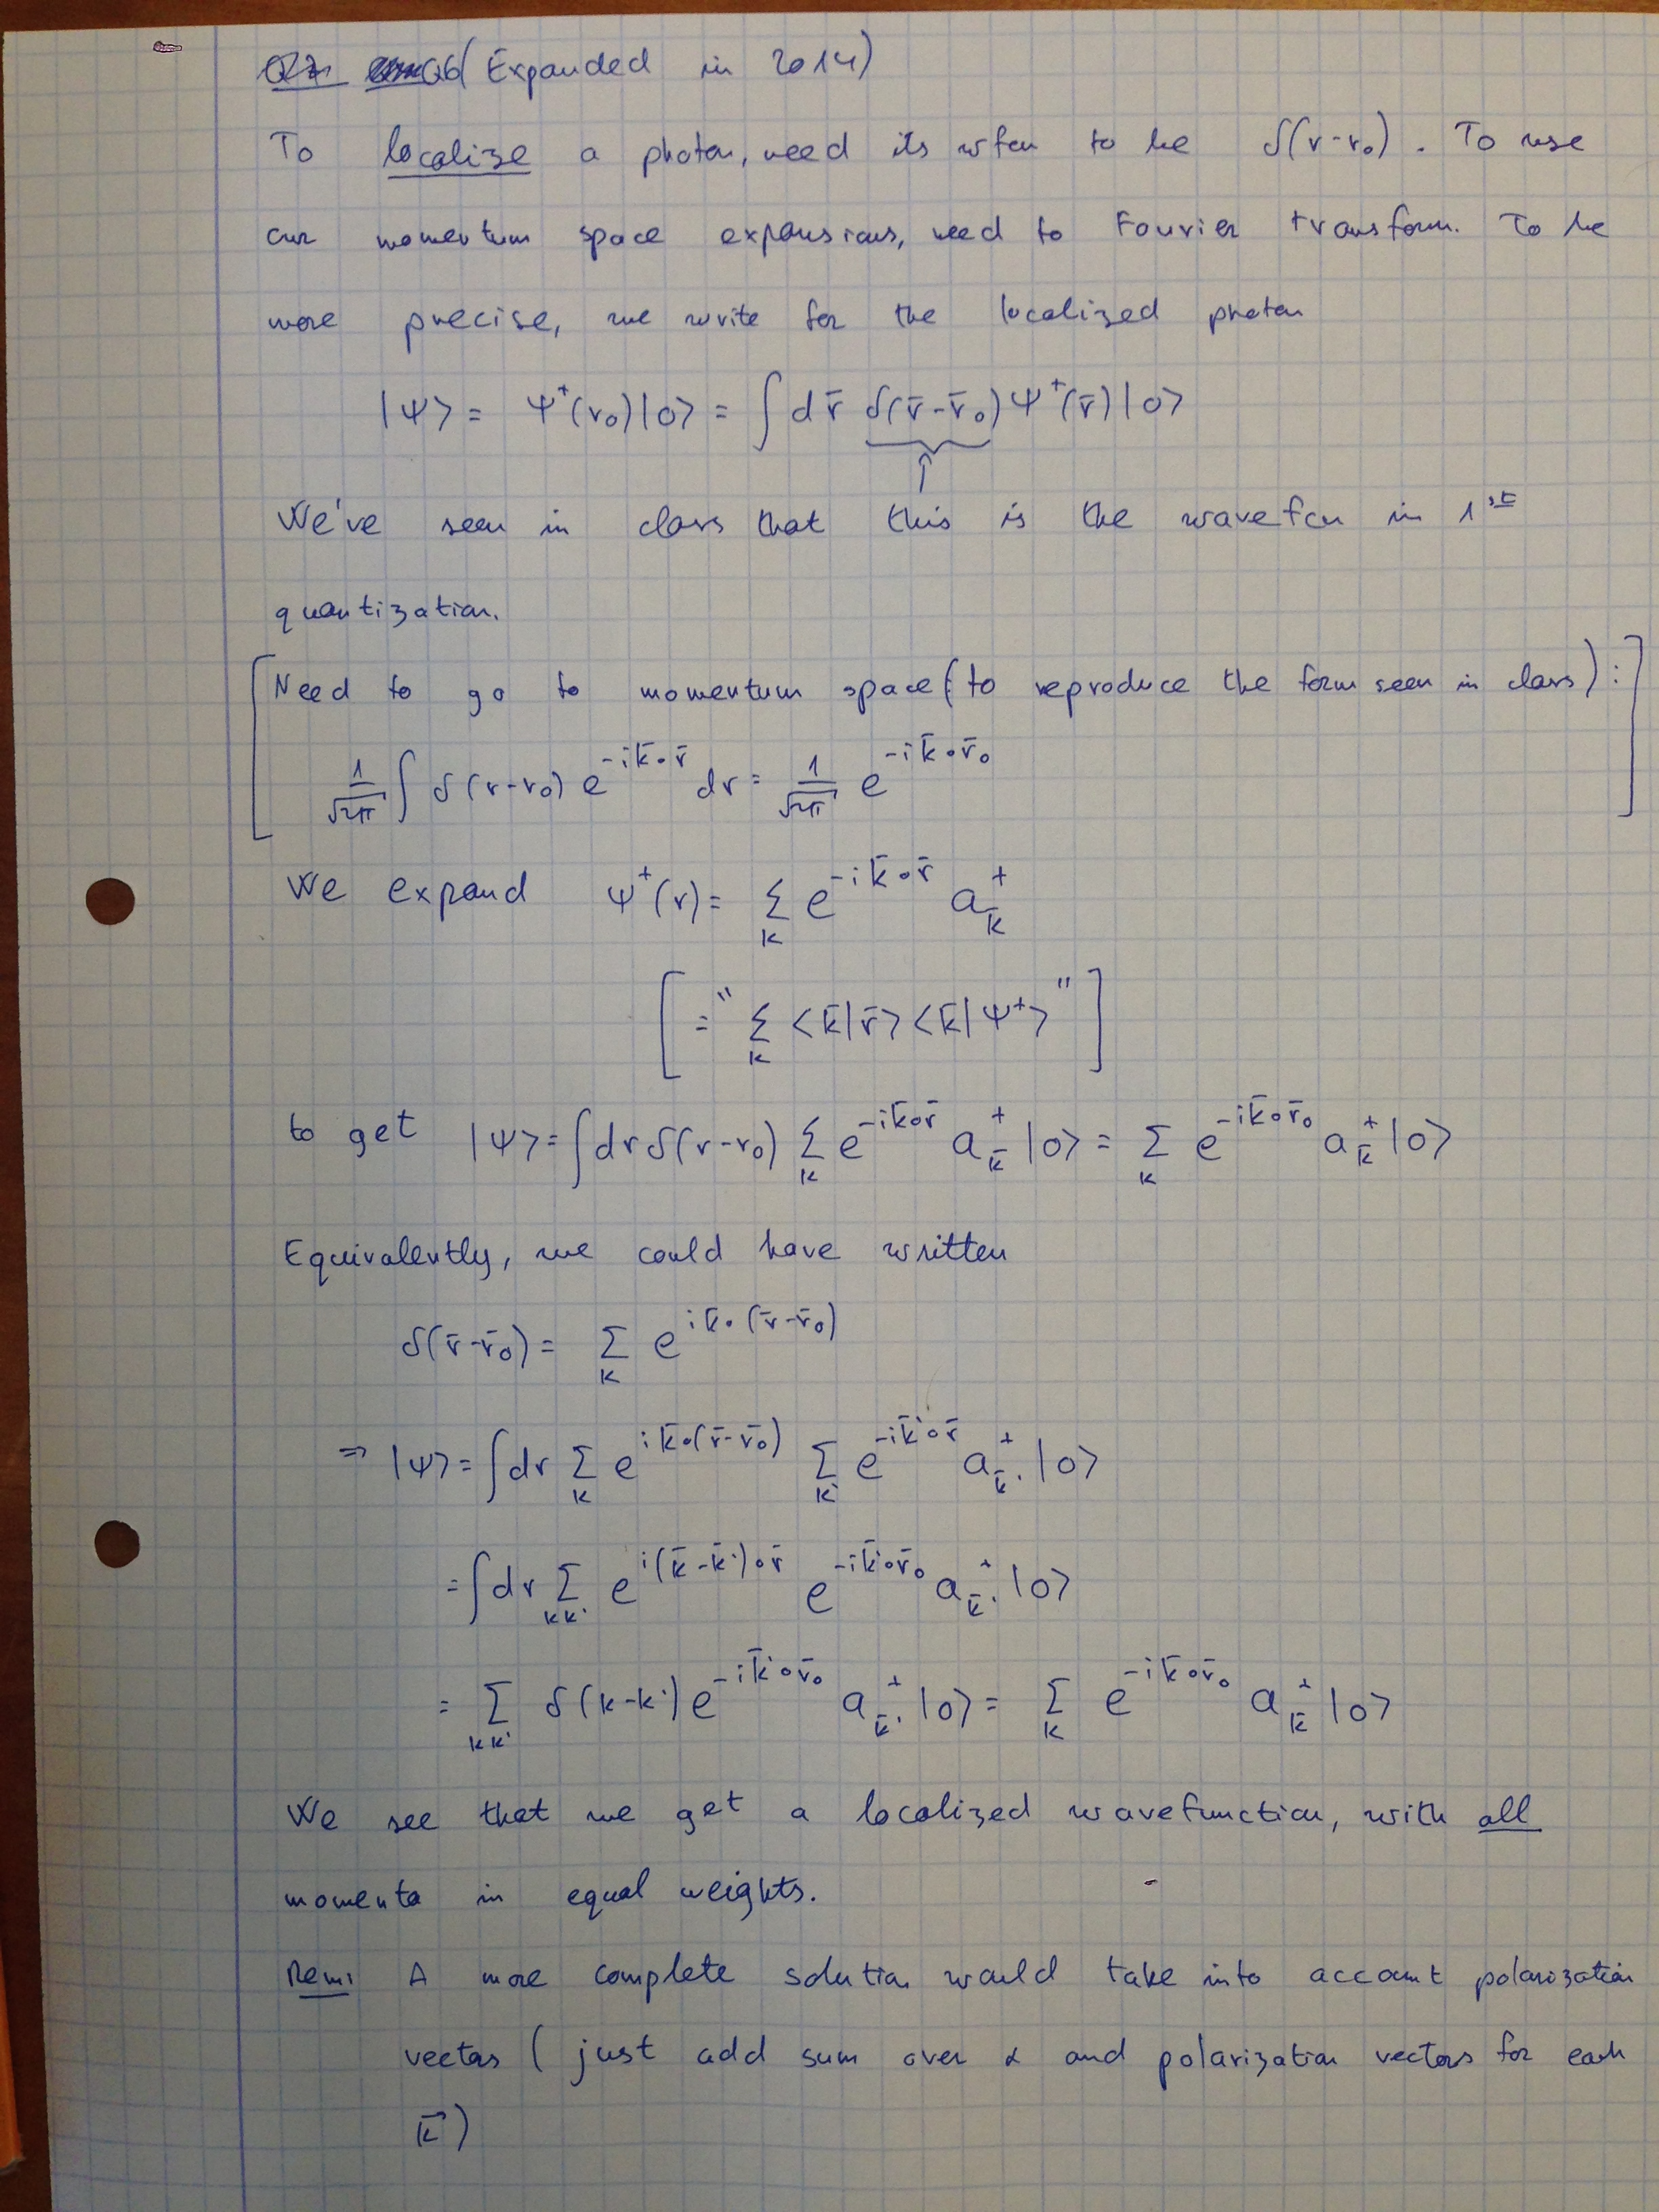 Q6 (Expanded in 2014)
To localize a photon, need its wfcn to be δ(r-r₀). To use
our momentum space expansions, need to Fourier transform. To be
more precise, we write for the localized photon
|Ψ> = Ψ⁺(r₀)|0> = ∫ dr̄ δ(r̄-r̄₀) Ψ⁺(r̄)|0>
↑
We've seen in class that this is the wavefcn in 1st
quantization.
[Need to go to momentum space (to reproduce the form seen in class):
1/√2π ∫ δ(r-r₀) e^{-ik̄∘r̄} dr = 1/√2π e^{-ik̄∘r̄₀}]
We expand Ψ⁺(r) = Σ_k e^{-ik̄∘r̄} a⁺_k̄
[= "Σ_k <k̄|r̄><k̄|Ψ⁺>"]
to get |Ψ> = ∫dr δ(r-r₀) Σ_k e^{-ik̄∘r̄} a⁺_k̄ |0> = Σ_k e^{-ik̄∘r̄₀} a⁺_k̄ |0>
Equivalently, we could have written
δ(r̄-r̄₀) = Σ_k e^{ik̄∘(r̄-r̄₀)}
⇒ |Ψ> = ∫dr Σ_k e^{ik̄∘(r̄-r̄₀)} Σ_k' e^{-ik̄'∘r̄} a⁺_k̄' |0>
= ∫dr Σ_kk' e^{i(k̄-k̄')∘r̄} e^{-ik̄∘r̄₀} a⁺_k̄' |0>
= Σ_kk' δ(k-k') e^{-ik̄∘r̄₀} a⁺_k̄' |0> = Σ_k e^{-ik̄∘r̄₀} a⁺_k̄ |0>
We see that we get a localized wavefunction, with all
momenta in equal weights.
Rem: A more complete solution would take into account polarization
vectors (just add sum over α and polarization vectors for each
k̄)